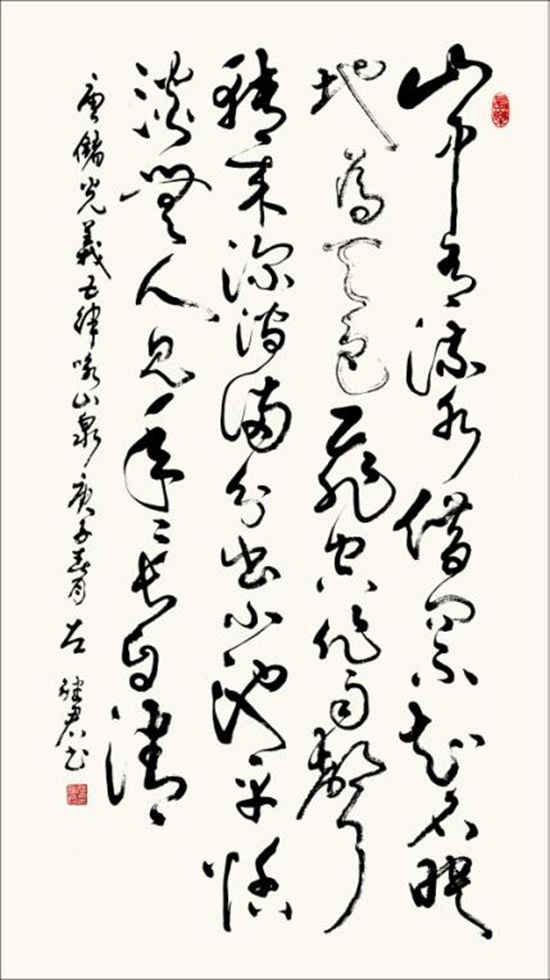 山中有流水借問不知名映
地為天色飛空作雨聲
轉來深澗滿分出小池平恬
澹無人見年々長自清
唐儲光羲五律咏山泉 庚子春月 左 君书